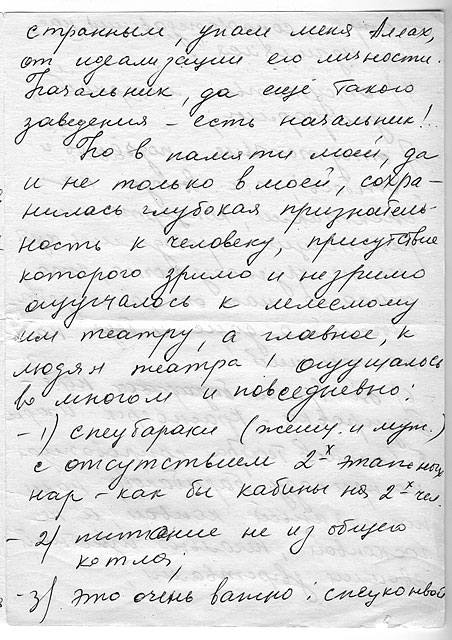 странным, упаси меня Аллах,
от идеализации его личности.
Начальник, да ещё такого
заведения – есть начальник!
Но в памяти моей, да
и не только в моей, сохра-
нилась глубокая признатель-
ность к человеку, присутствие
которого зримо и незримо
ощущалось к лелеемому
им театру, а главное, к
людям театра! Ощущалось
во многом и повседневно:
- 1) спецбараки (женш. и муж.)
с отсутствием 2-х этажных
нар – как бы кабины на 2-х чел.
- 2) питание не из общего
котла;
- 3) это очень важно: спецконвой